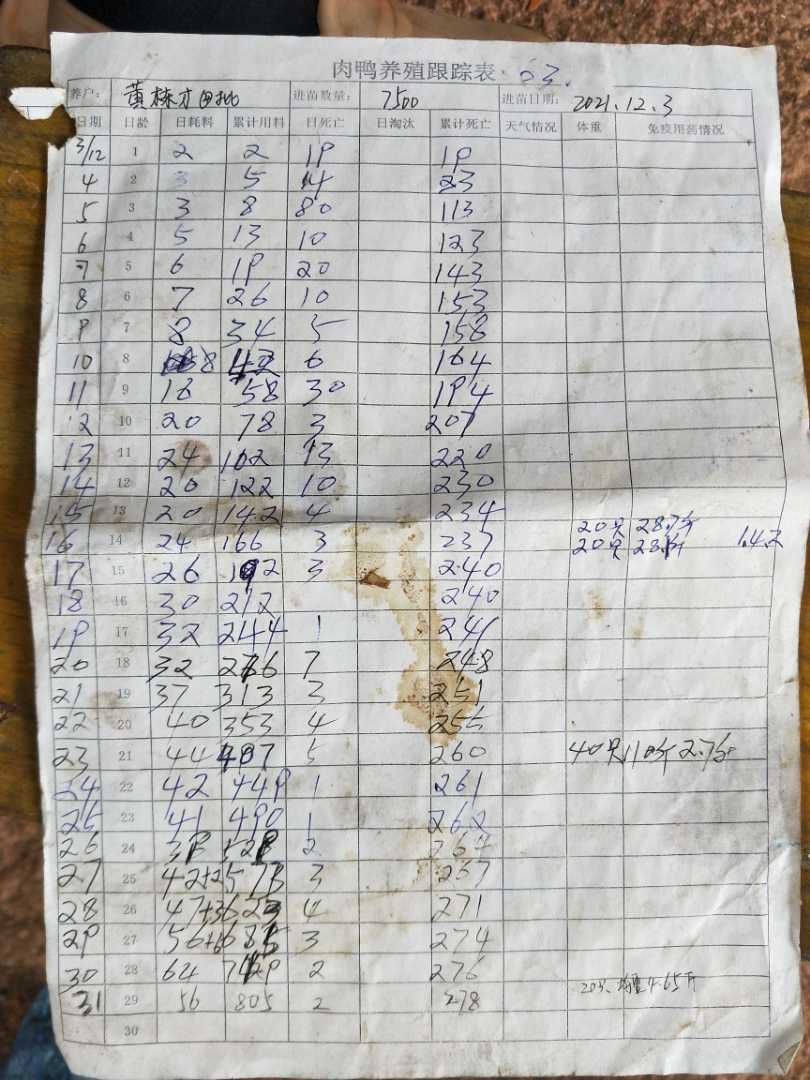 肉鸭养殖跟踪表 03.
养户: 黄栋才 四批 进苗数量: 7500 进苗日期: 2021.12.3
日期 日龄 日耗料 累计用料 日死亡 日淘汰 累计死亡 天气情况 体重 免疫用药情况
3/12 1 2 2 19 19
4 2 3 5 14 23
5 3 3 8 80 113
6 4 5 13 10 123
7 5 6 19 20 143
8 6 7 26 10 153
9 7 8 34 5 158
10 8 8 42 6 164
11 9 16 58 30 194
12 10 20 78 3 207
13 11 24 102 13 220
14 12 20 122 10 230
15 13 20 142 4 234 20只 28.7斤
16 14 24 166 3 237 20只 28.1斤 1.42
17 15 26 192 3 240
18 16 30 212 240
19 17 32 244 1 241
20 18 32 276 7 248
21 19 37 313 3 251
22 20 40 353 4 255
23 21 44 407 5 260 40只110斤 2.7斤
24 22 42 449 1 261
25 23 41 490 1 262
26 24 39 529 2 264
27 25 42+2 573 3 267
28 26 47+3 623 4 271
29 27 56+6 685 3 274
30 28 64 749 2 276
31 29 56 805 2 278 4.65斤
30